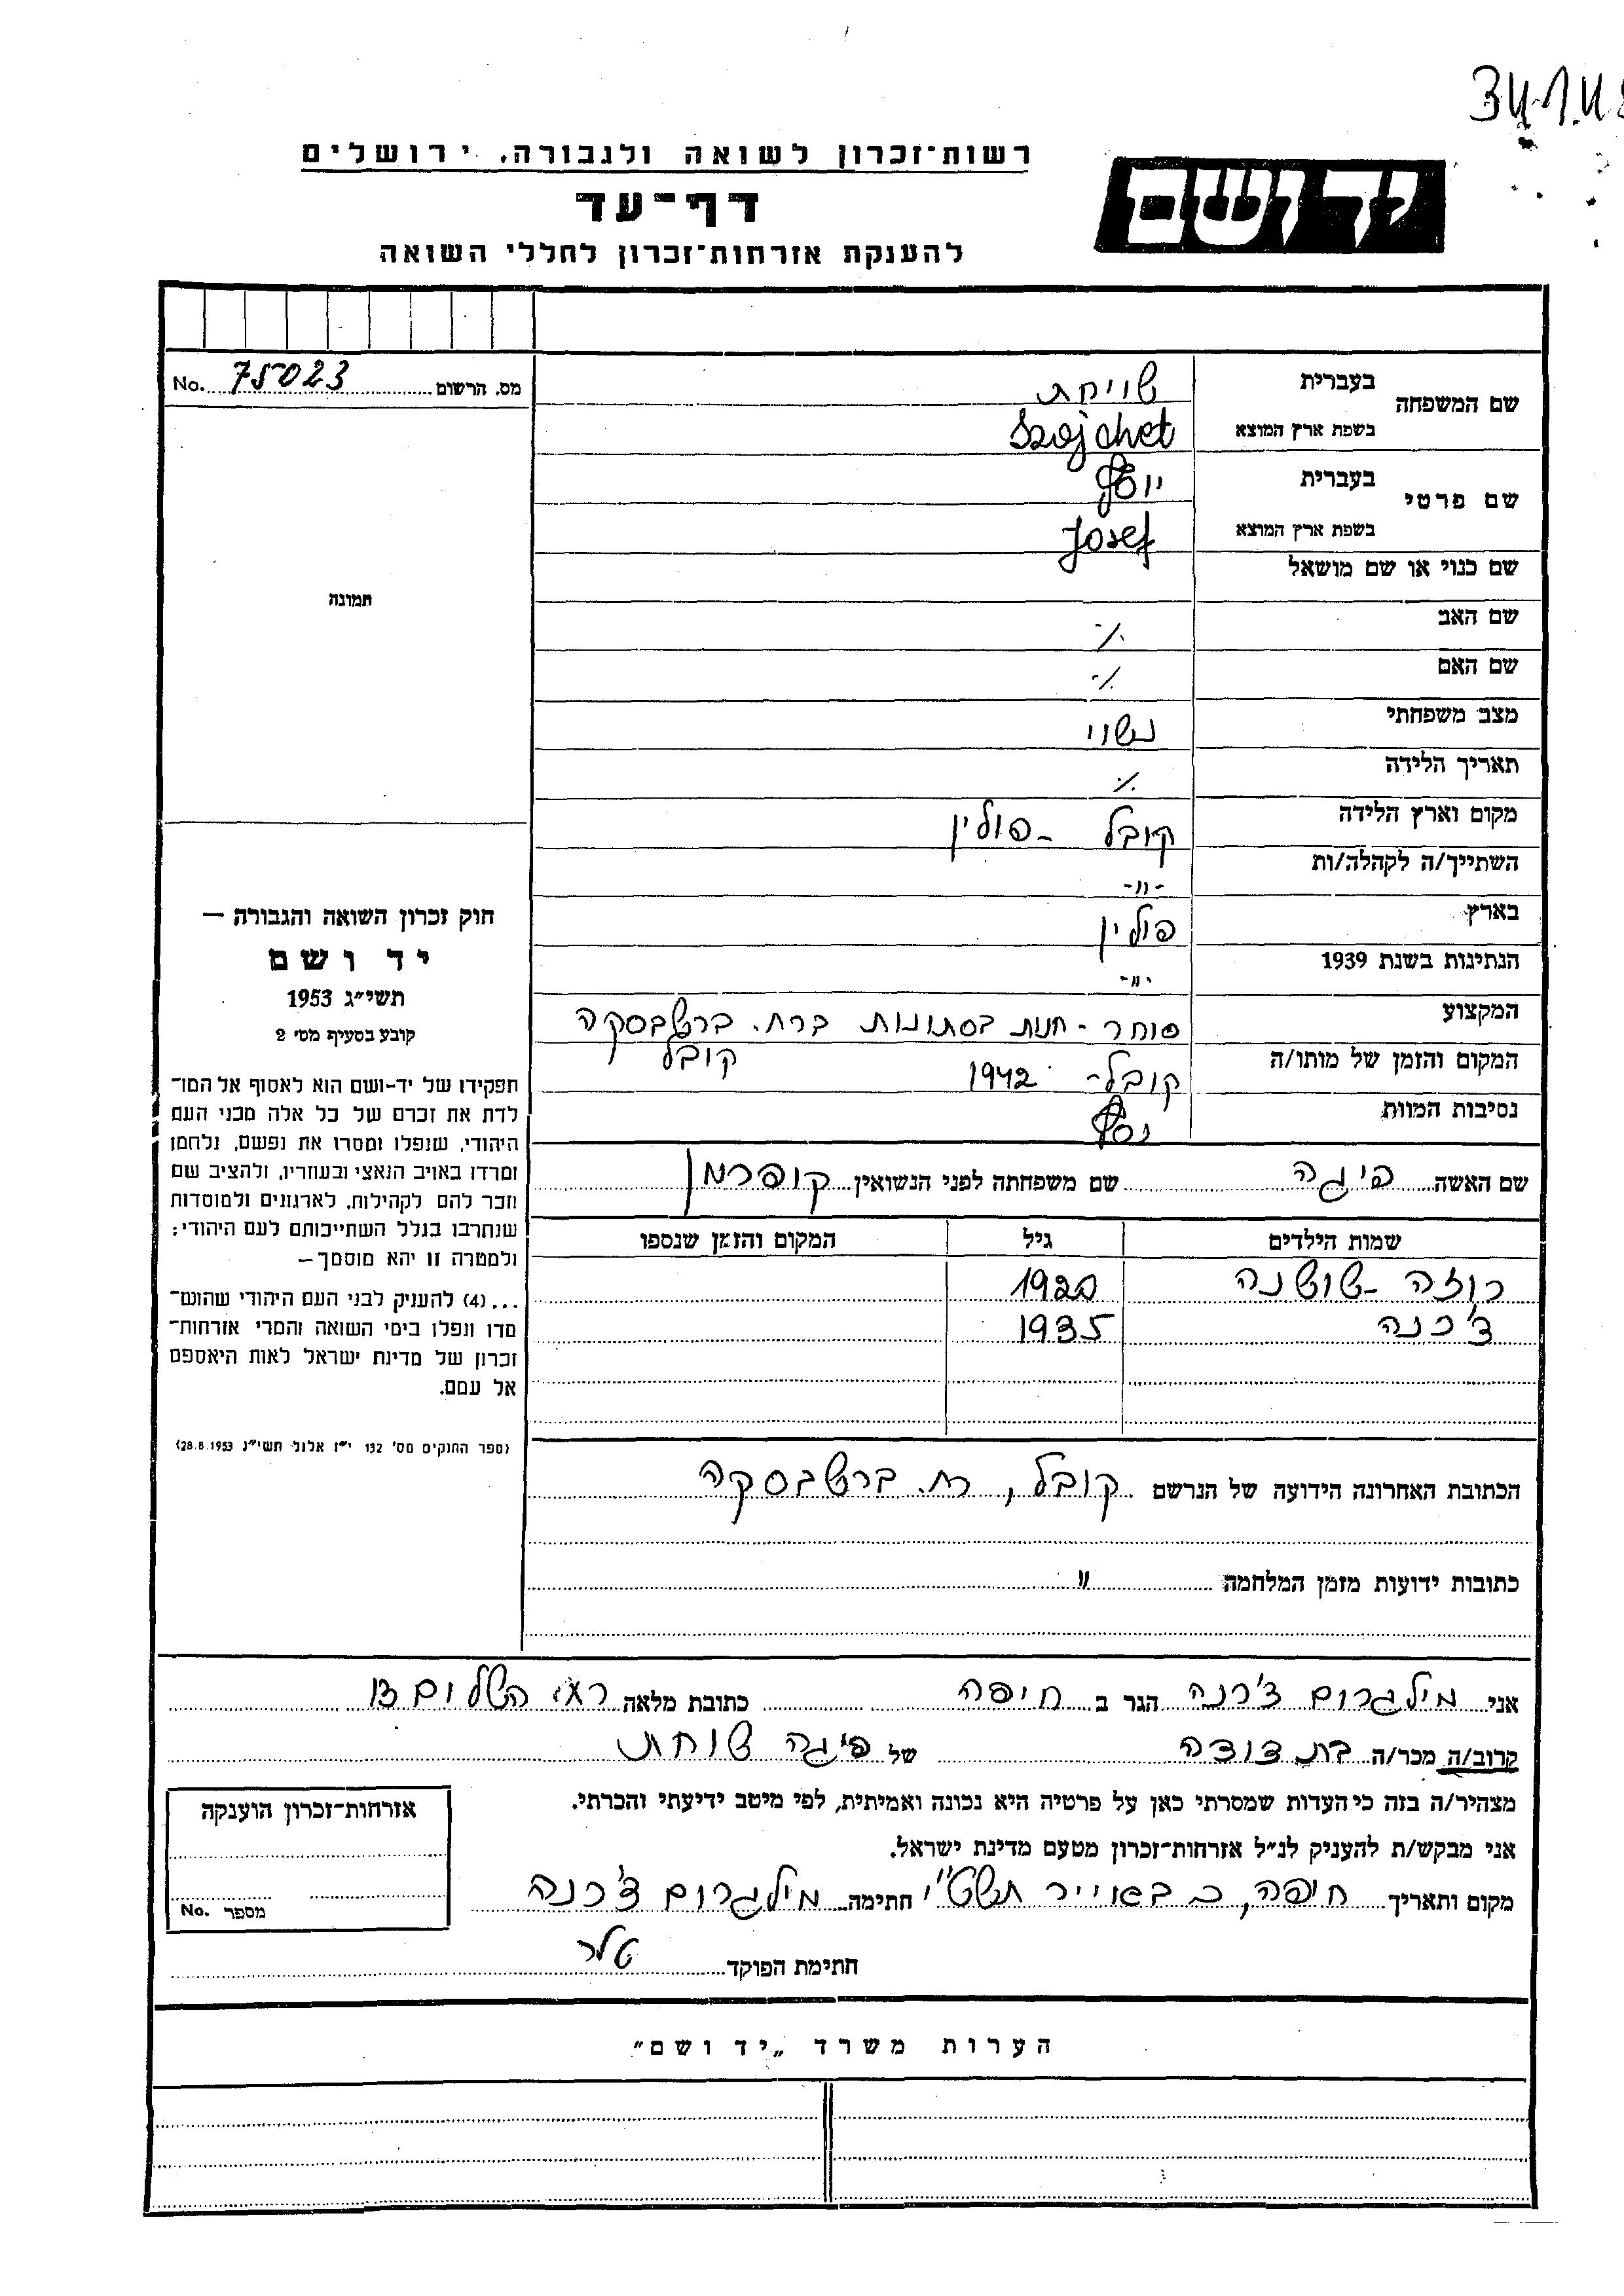 רשות־זכרון לשואה ולגבורה, ירושלים
יד ושם
דף־עד
להענקת אזרחות־זכרון לחללי השואה
מס. הרשום 75023 No.
שם המשפחה
בעברית
שויחת
בשפת ארץ המוצא
Szojchet
שם פרטי
בעברית
יוסף
בשפת ארץ המוצא
Josef
שם כנוי או שם מושאל
שם האב ./.
שם האם ./.
מצב משפחתי נשוי
תאריך הלידה ./.
מקום וארץ הלידה קובל - פולין
השתייך/ה לקהלה/ות -"-
בארץ פולין
הנתינות בשנת 1939 -"-
המקצוע סוחר - חנות בסתונות ברח.
קובל
המקום והזמן של מותו/ה קובל - 1942
נסיבות המוות נסף
תמונה
חוק זכרון השואה והגבורה —
יד ושם
תשי״ג 1953
קובע בסעיף מס׳ 2
תפקידו של יד-ושם הוא לאסוף אל המו־
לדת את זכרם של כל אלה מבני העם
היהודי, שנפלו ומסרו את נפשם, נלחמו
ומרדו באויב הנאצי ובעוזריו, ולהציב שם
וזכר להם לקהילות, לארגונים ולמוסדות
שנחרבו בגלל השתייכותם לעם היהודי;
ולמטרה זו יהא מוסמך —
...(4) להעניק לבני העם היהודי שהוש־
מדו ונפלו בימי השואה והמרי אזרחות־
זכרון של מדינת ישראל לאות היאספם
אל עמם.
(ספר החוקים מס׳ 132 י״ז אלול תשי״ג 28.8.1953)
שם האשה פיגה שם משפחתה לפני הנשואין קופרמן
שמות הילדים גיל המקום והזמן שנספו
רוזה - שושנה
צ'רנה 1935
הכתובת האחרונה הידועה של הנרשם קובל, רח.
כתובות ידועות מזמן המלחמה "
אני מילגרום צ'רנה הגר ב חיפה כתובת מלאה השלום 13
קרוב/ה מכר/ה בת דודה של פיגה שוחת
מצהיר/ה בזה כי העדות שמסרתי כאן על פרטיה היא נכונה ואמיתית, לפי מיטב ידיעתי והכרתי.
אני מבקש/ת להעניק לנ״ל אזרחות־זכרון מטעם מדינת ישראל.
מקום ותאריך חיפה, כ באייר תשט"י חתימה מילגרום צ'רנה
חתימת הפוקד טלר
אזרחות־זכרון הוענקה
מספר No.
הערות משרד „יד ושם״